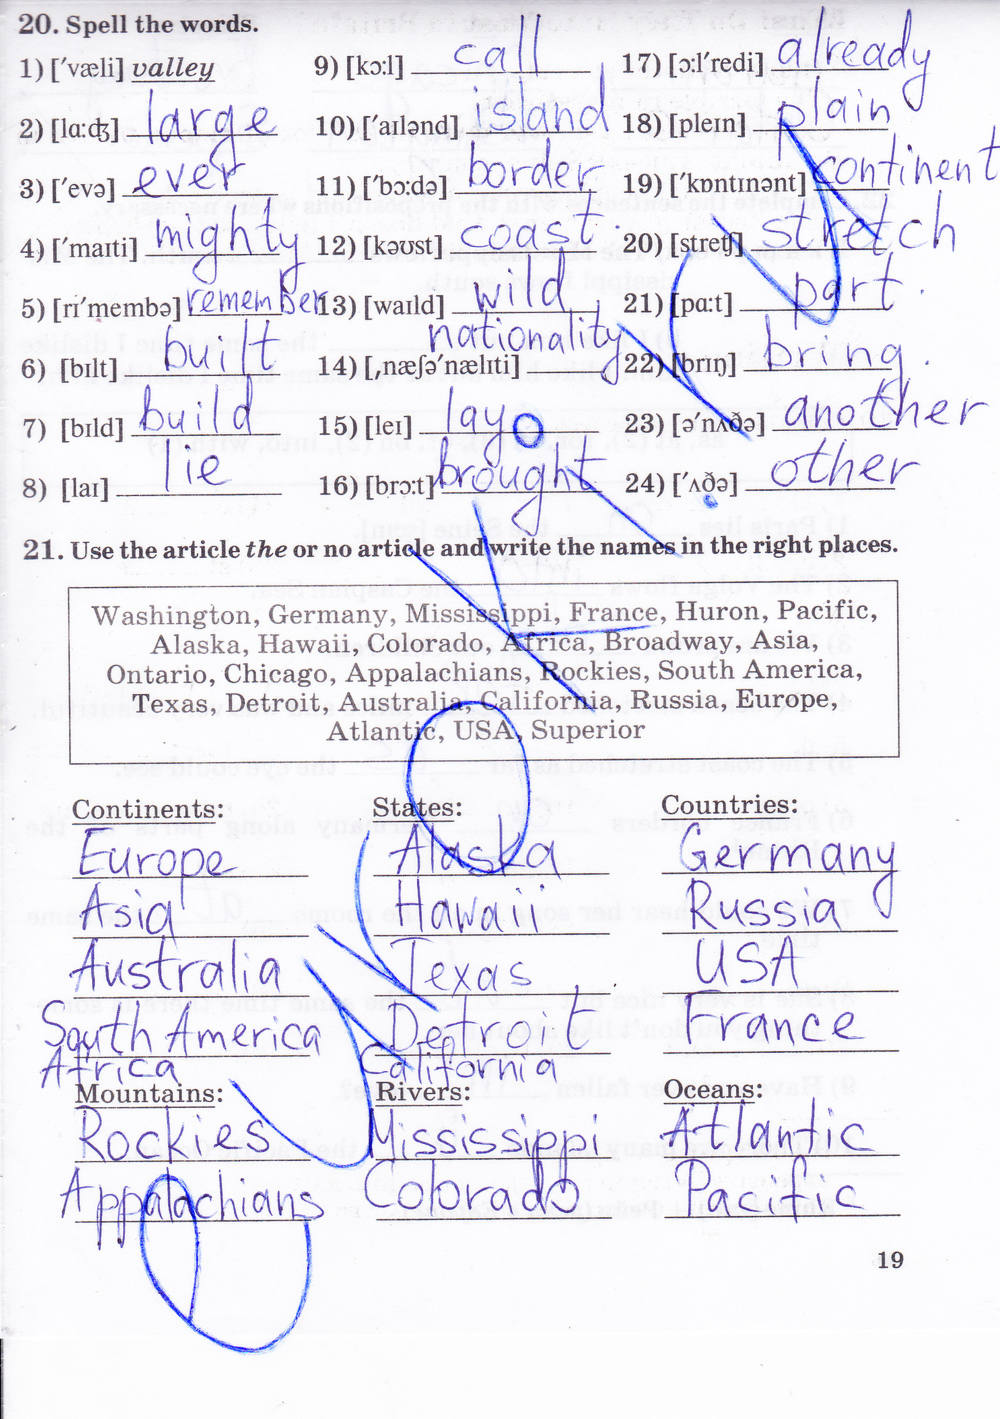 20. Spell the words.
1) [ˈvæli] valley 9) [kɔ:l] call 17) [ɔ:lˈredi] already
2) [lɑ:ʤ] large 10) [ˈaɪlənd] island 18) [pleɪn] plain
3) [ˈevə] ever 11) [ˈbɔ:də] border 19) [ˈkɒntɪnənt] continent
4) [ˈmaɪti] mighty 12) [kəʊst] coast 20) [stretʃ] stretch
5) [riˈmembə] remember 13) [waɪld] wild 21) [pɑ:t] part
6) [bɪlt] built 14) [ˌnæʃəˈnælɪti] nationality 22) [brɪŋ] bring
7) [bɪld] build 15) [leɪ] lay 23) [əˈnʌðə] another
8) [laɪ] lie 16) [brɔ:t] brought 24) [ˈʌðə] other
21. Use the article the or no article and write the names in the right places.
Washington, Germany, Mississippi, France, Huron, Pacific,
Alaska, Hawaii, Colorado, Africa, Broadway, Asia,
Ontario, Chicago, Appalachians, Rockies, South America,
Texas, Detroit, Australia, California, Russia, Europe,
Atlantic, USA, Superior
Continents: States: Countries:
Europe Alaska Germany
Asia Hawaii Russia
Australia Texas USA
South America Detroit France
Africa California
Mountains: Rivers: Oceans:
Rockies Mississippi Atlantic
Appalachians Colorado Pacific
19